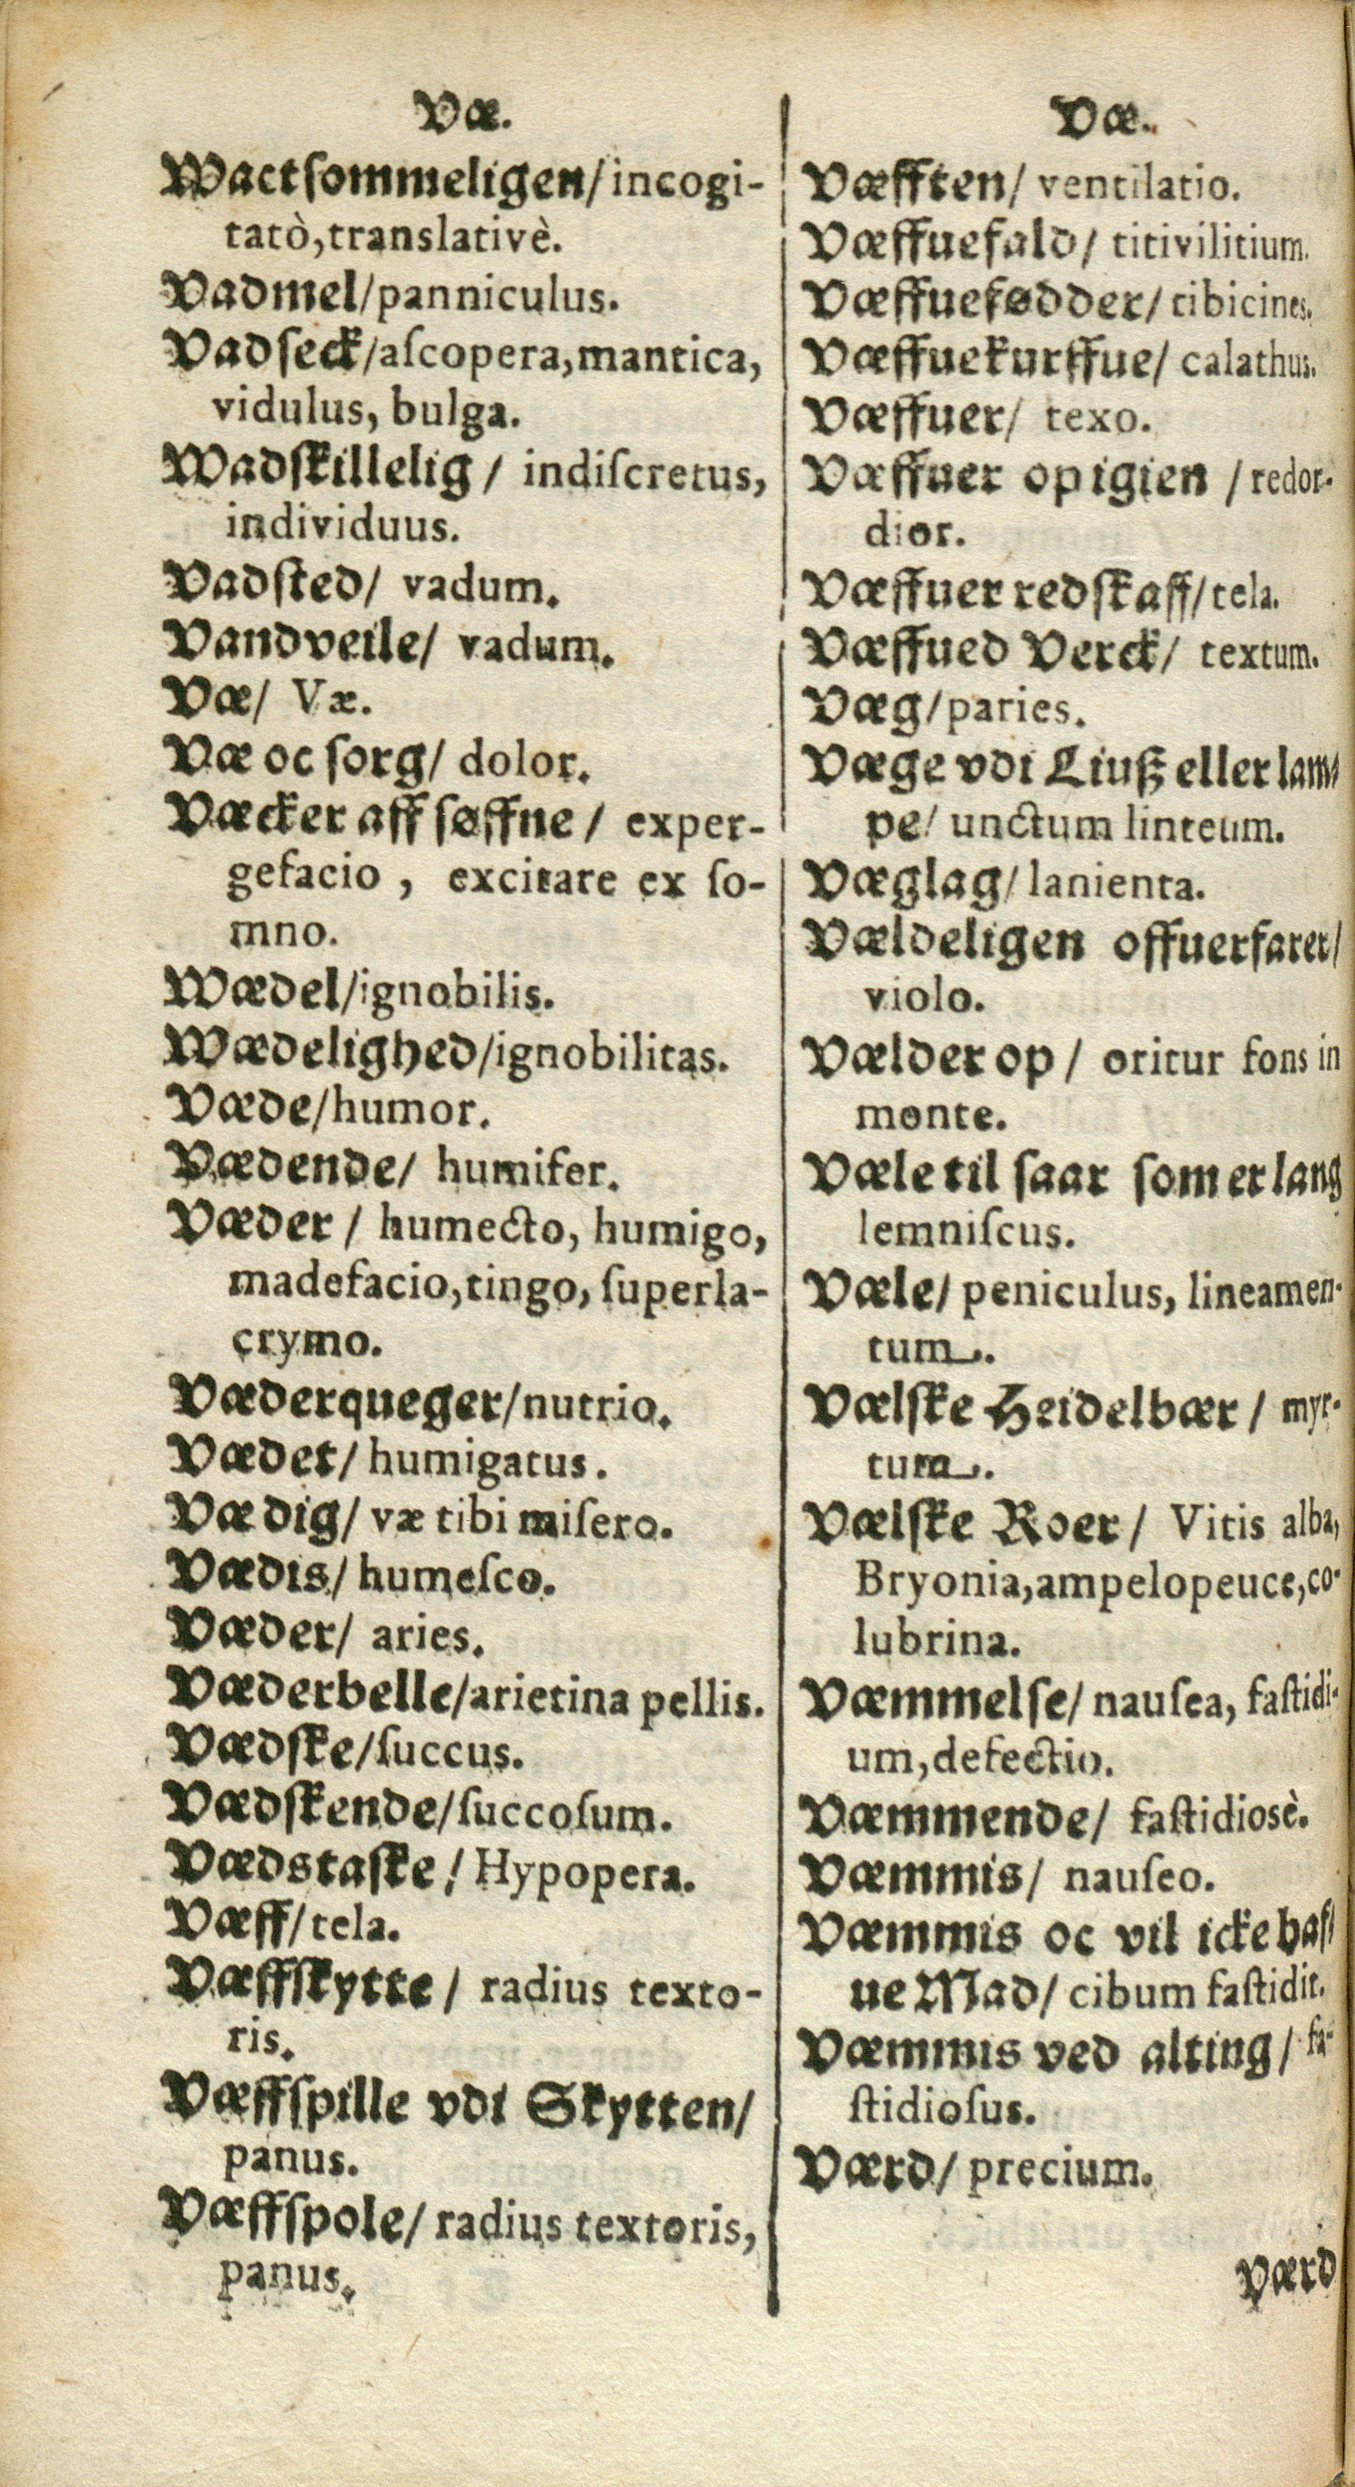 Væ.
Wactſommeligen/incogi-
tatò,translativè.
Vadmel/panniculus.
Vadſeck/aſcopera,mantica,
vidulus, bulga.
Wadſkillelig/ indiſcretus,
individuus.
Vadſted/ vadum.
Vandveile/ vadum.
Væ/ Væ.
Væ oc ſorg/ dolor.
Væcker aff ſøffne/ exper-
gefacio, excitare ex ſo-
mno.
Wædel/ignobilis.
Wædelighed/ignobilitas.
Væde/humor.
Vædende/ humifer.
Væder/ humecto, humigo,
madefacio,tingo, ſuperla-
crymo.
Væderqueger/nutrio.
Vædet/humigatus.
Væ dig/ væ tibi miſero.
Vædis/humeſco.
Væder/ aries.
Væderbelle/arietina pellis.
Vædſke/ſuccus.
Vædſkende/ſuccoſum.
Vædstaſke/Hypopera.
Væff/tela.
Væffſkytte/ radius texto-
ris.
Væffſpille vdi Skytten/
panus.
Væffſpole/ radius textoris,
panus.
Væ.
Væfften/ ventilatio.
Væffuefald/ titivilitium.
Væffuefødder/ tibicines.
Væffuekurffue/ calathus.
Væffuer/ texo.
Væffuer op igien/redor-
dior.
Væffuer redſkaff/tela.
Væffued Verck/ textum.
Væg/paries.
Væge vdi Liuß eller lam-
pe/ unctum linteum.
Væglag/lanienta.
Vældeligen offuerfarer/
violo.
Vælder op/ oritur fons in
monte.
Væle til ſaar ſom er lang
lemniſcus.
Væle/ peniculus, lineamen-
tum.
Vælſke Heidelbær/ myr-
tum.
Vælſke Roer/ Vitis alba,
Bryonia,ampelopeuce,co-
lubrina.
Væmmelſe/nauſea, faſtidi-
um,defectio.
Væmmende/ faſtidiosè.
Væmmis/ nauſeo.
Væmmis oc vil icke haf-
ue Mad/ cibum faſtidit.
Væmmis ved alting/ fa-
ſtidioſus.
Værd/ precium.
Værd